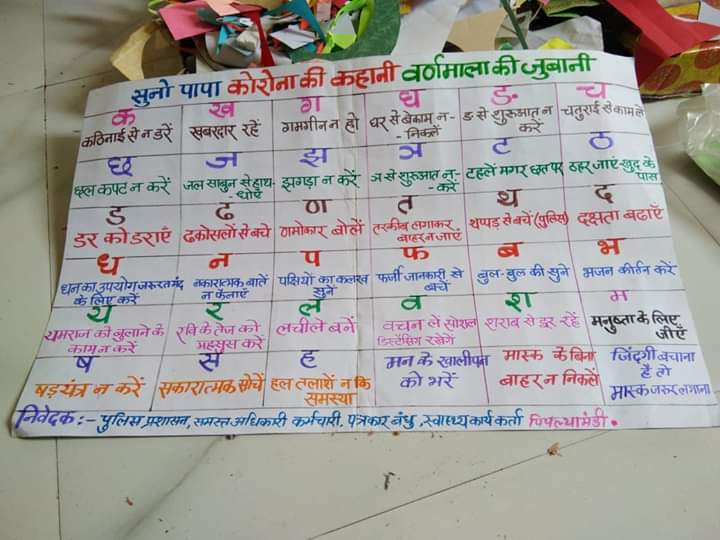 सुनो पापा कोरोना की कहानी वर्णमाला की जुबानी
क ख ग घ ङ च
कठिनाई से न डरें खबरदार रहें गमगीन न हो घर से बेकाम न - - निकलें ङ से शुरूआत न करें चतुराई से काम लें
छ ज झ ञ ट ठ
छल कपट न करें जल साबुन से हाथ - धोएँ झगड़ा न करें ञ से शुरूआत न - - करें टहलें मगर छत पर ठहर जाएं खुद के पास
ड ढ ण त थ द
डर को डराएँ ढकोसलों से बचे णमोकार बोलें तरकीब लगाकर बाहर न जाएं थप्पड़ से बचें (पुलिस) दक्षता बढाएँ
ध न प फ ब भ
धन का उपयोग जरूरतमंद के लिए करें नकारात्मक बातें न फैलाएं पक्षियों का कलरव सुनें फर्जी जानकारी से बचें बुल-बुल की सुने भजन कीर्तन करें
य र ल व श म
यमराज को बुलाने के काम न करें रवि के तेज को महसूस करें लचीले बनें वचन लें सोशल डिस्टेंसिंग रखेगे शराब से दूर रहें मनुष्यता के लिए जीएँ
ष स ह
षड़यंत्र न करें सकारात्मक सोचें हल तलाशें न कि समस्या मन के खालीपन को भरें मास्क के बिना बाहर न निकलें जिंदगी बचाना है तो मास्क जरूर लगाना
निवेदक :- पुलिस प्रशासन, समस्त अधिकारी कर्मचारी, पत्रकार बंधु, स्वास्थ्य कार्यकर्ता पिपल्यामंडी.